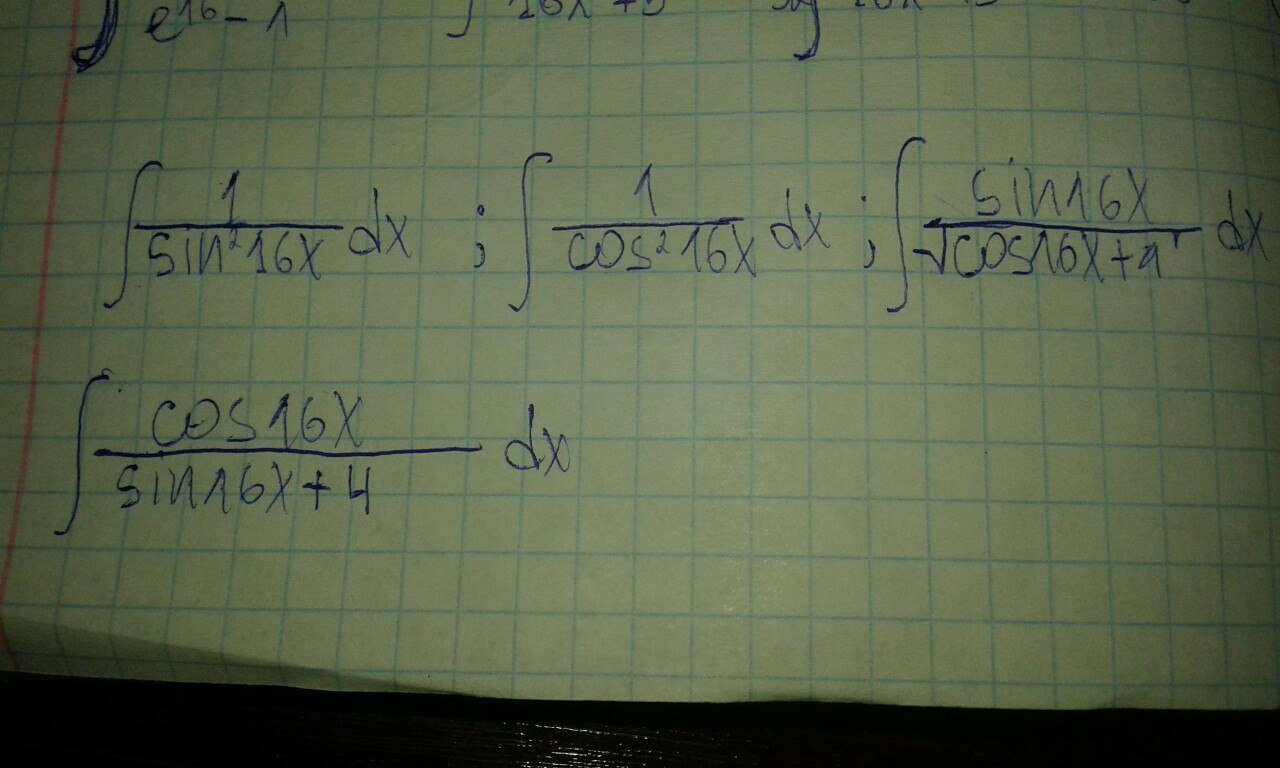 e^16 - 1
∫ 1/(sin² 16x) dx ; ∫ 1/(cos² 16x) dx ; ∫ sin16x/√(cos16x+1) dx
∫ cos16x/(sin16x+4) dx